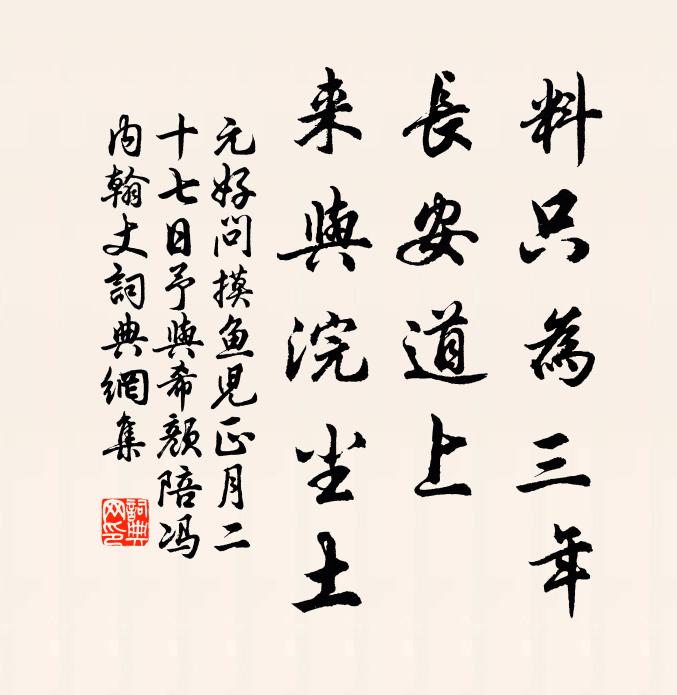 料只為三年
長安道上
来與浣尘土
元好问摸鱼児正月二
十七日予與希颜陪冯
内翰丈詞典網集
詞典
网印